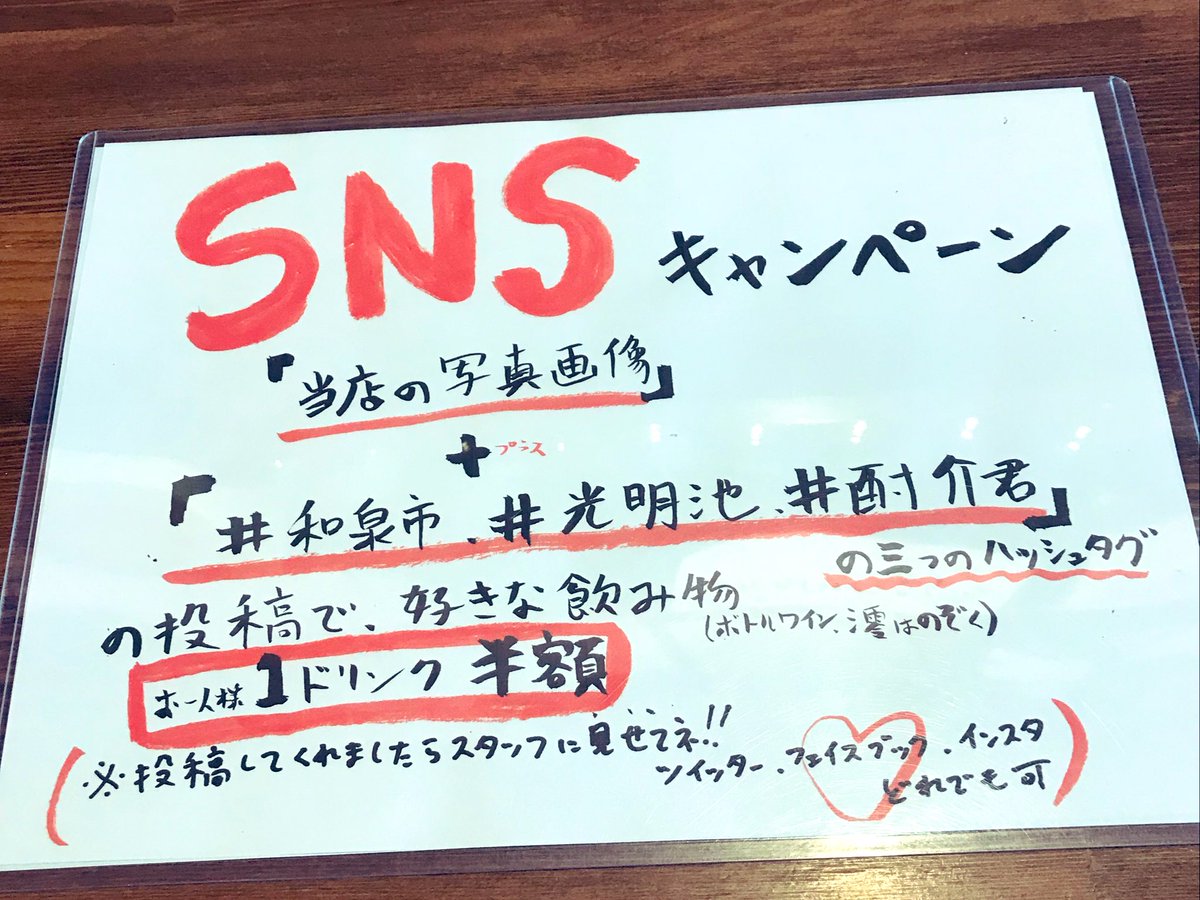 SNS キャンペーン
「当店の写真画像」
+プラス
「#和泉市、#光明池、#酎介君」
の三つのハッシュタグ
の投稿で、好きな飲み物
(ボトルワイン、澪はのぞく)
お一人様 1ドリンク 半額
(※投稿してくれましたらスタッフに見せてネ!!
ツイッター、フェイスブック、インスタ
どれでも可)